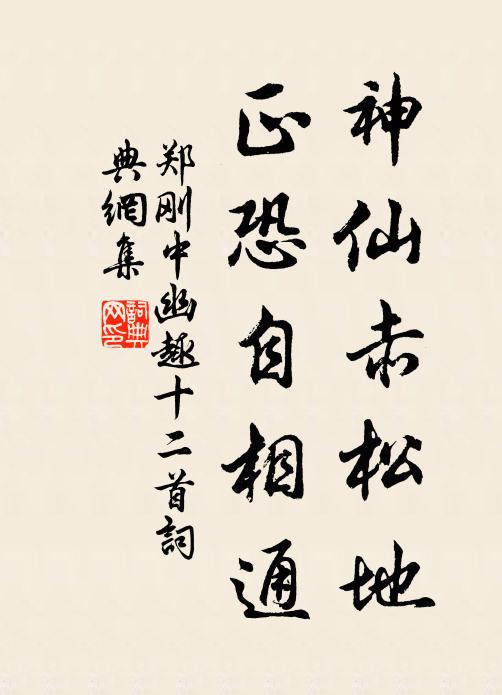 神仙赤松地
正恐自相通
郑刚中幽趣十二首词
典網集
詞典
网印